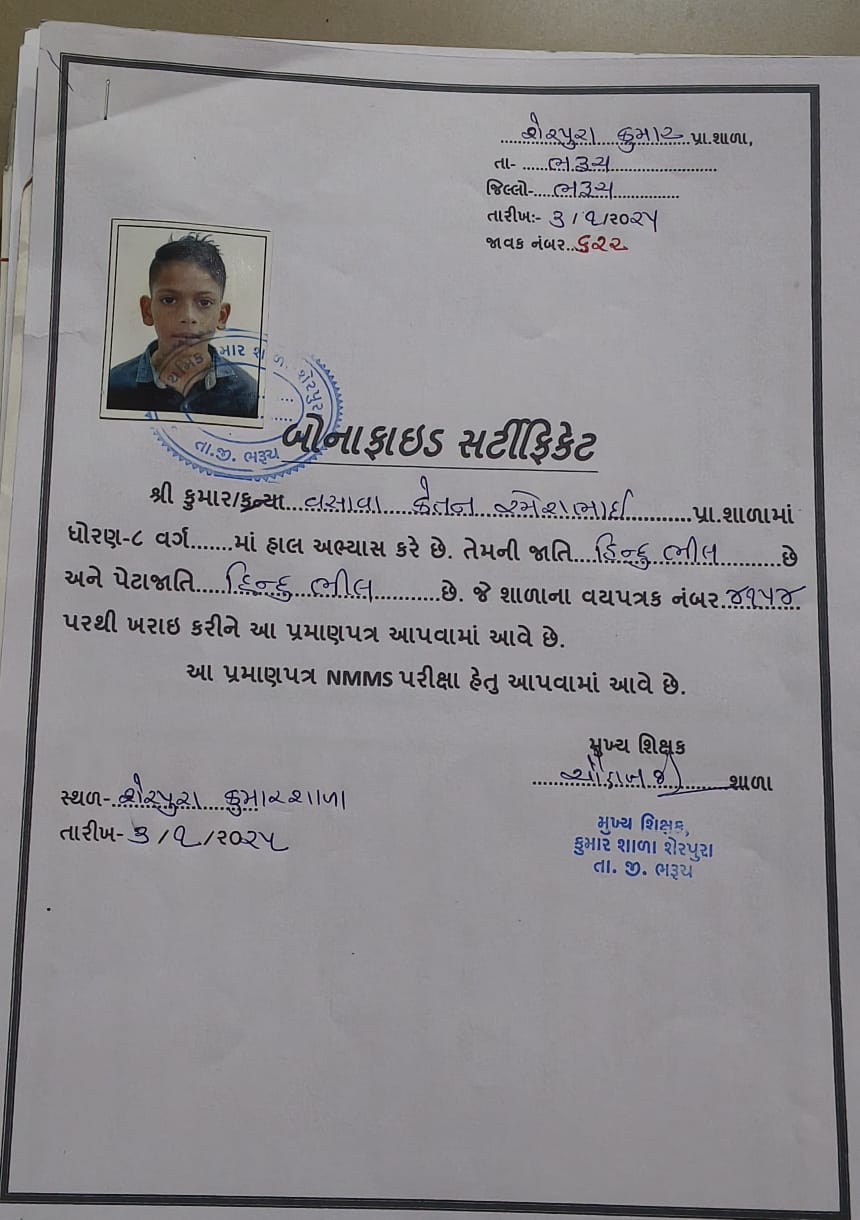 શેરપુરા કુમાર પ્રા.શાળા,
તા- ભરૂચ
જિલ્લો- ભરૂચ
તારીખ:- ૩/૧/૨૦૨૫
જાવક નંબર..૬૨૨
માર શાળા શેરપુરા
તા.જી. ભરૂચ
બોનાફાઇડ સર્ટીફિકેટ
શ્રી કુમાર/કન્યા વસાવા કેતન રમેશભાઈ પ્રા.શાળામાં
ધોરણ-૮ વર્ગ.......માં હાલ અભ્યાસ કરે છે. તેમની જાતિ હિન્દુ ભીલ છે
અને પેટાજાતિ હિન્દુ ભીલ છે. જે શાળાના વયપત્રક નંબર ૪૧૫૪
પરથી ખરાઇ કરીને આ પ્રમાણપત્ર આપવામાં આવે છે.
આ પ્રમાણપત્ર NMMS પરીક્ષા હેતુ આપવામાં આવે છે.
મુખ્ય શિક્ષક
શાળા
સ્થળ- શેરપુરા કુમારશાળા
તારીખ- ૩/૧/૨૦૨૫
મુખ્ય શિક્ષક,
કુમાર શાળા શેરપુરા
તા. જી. ભરૂચ